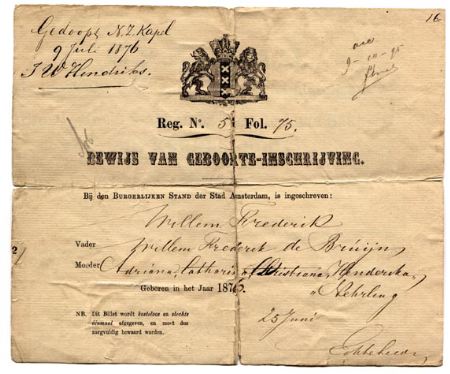 Gedoopt N.Z. Kapel
9 Juli 1876
J W Hendriks.
16
Reg. N°. 5 Fol. 75.
BEWIJS VAN GEBOORTE-INSCHRIJVING.
Bij den BURGERLIJKEN STAND der Stad Amsterdam, is ingeschreven:
Willem Frederik
Vader Willem Frederik de Bruijn
Moeder Adriana, Catharina, Christiana, Henderika,
Nehrling
Geboren in het Jaar 1876.
25 Juni
NB. Dit Billet wordt kosteloos en slechts
eenmaal afgegeven, en moet dus
zorgvuldig bewaard worden.